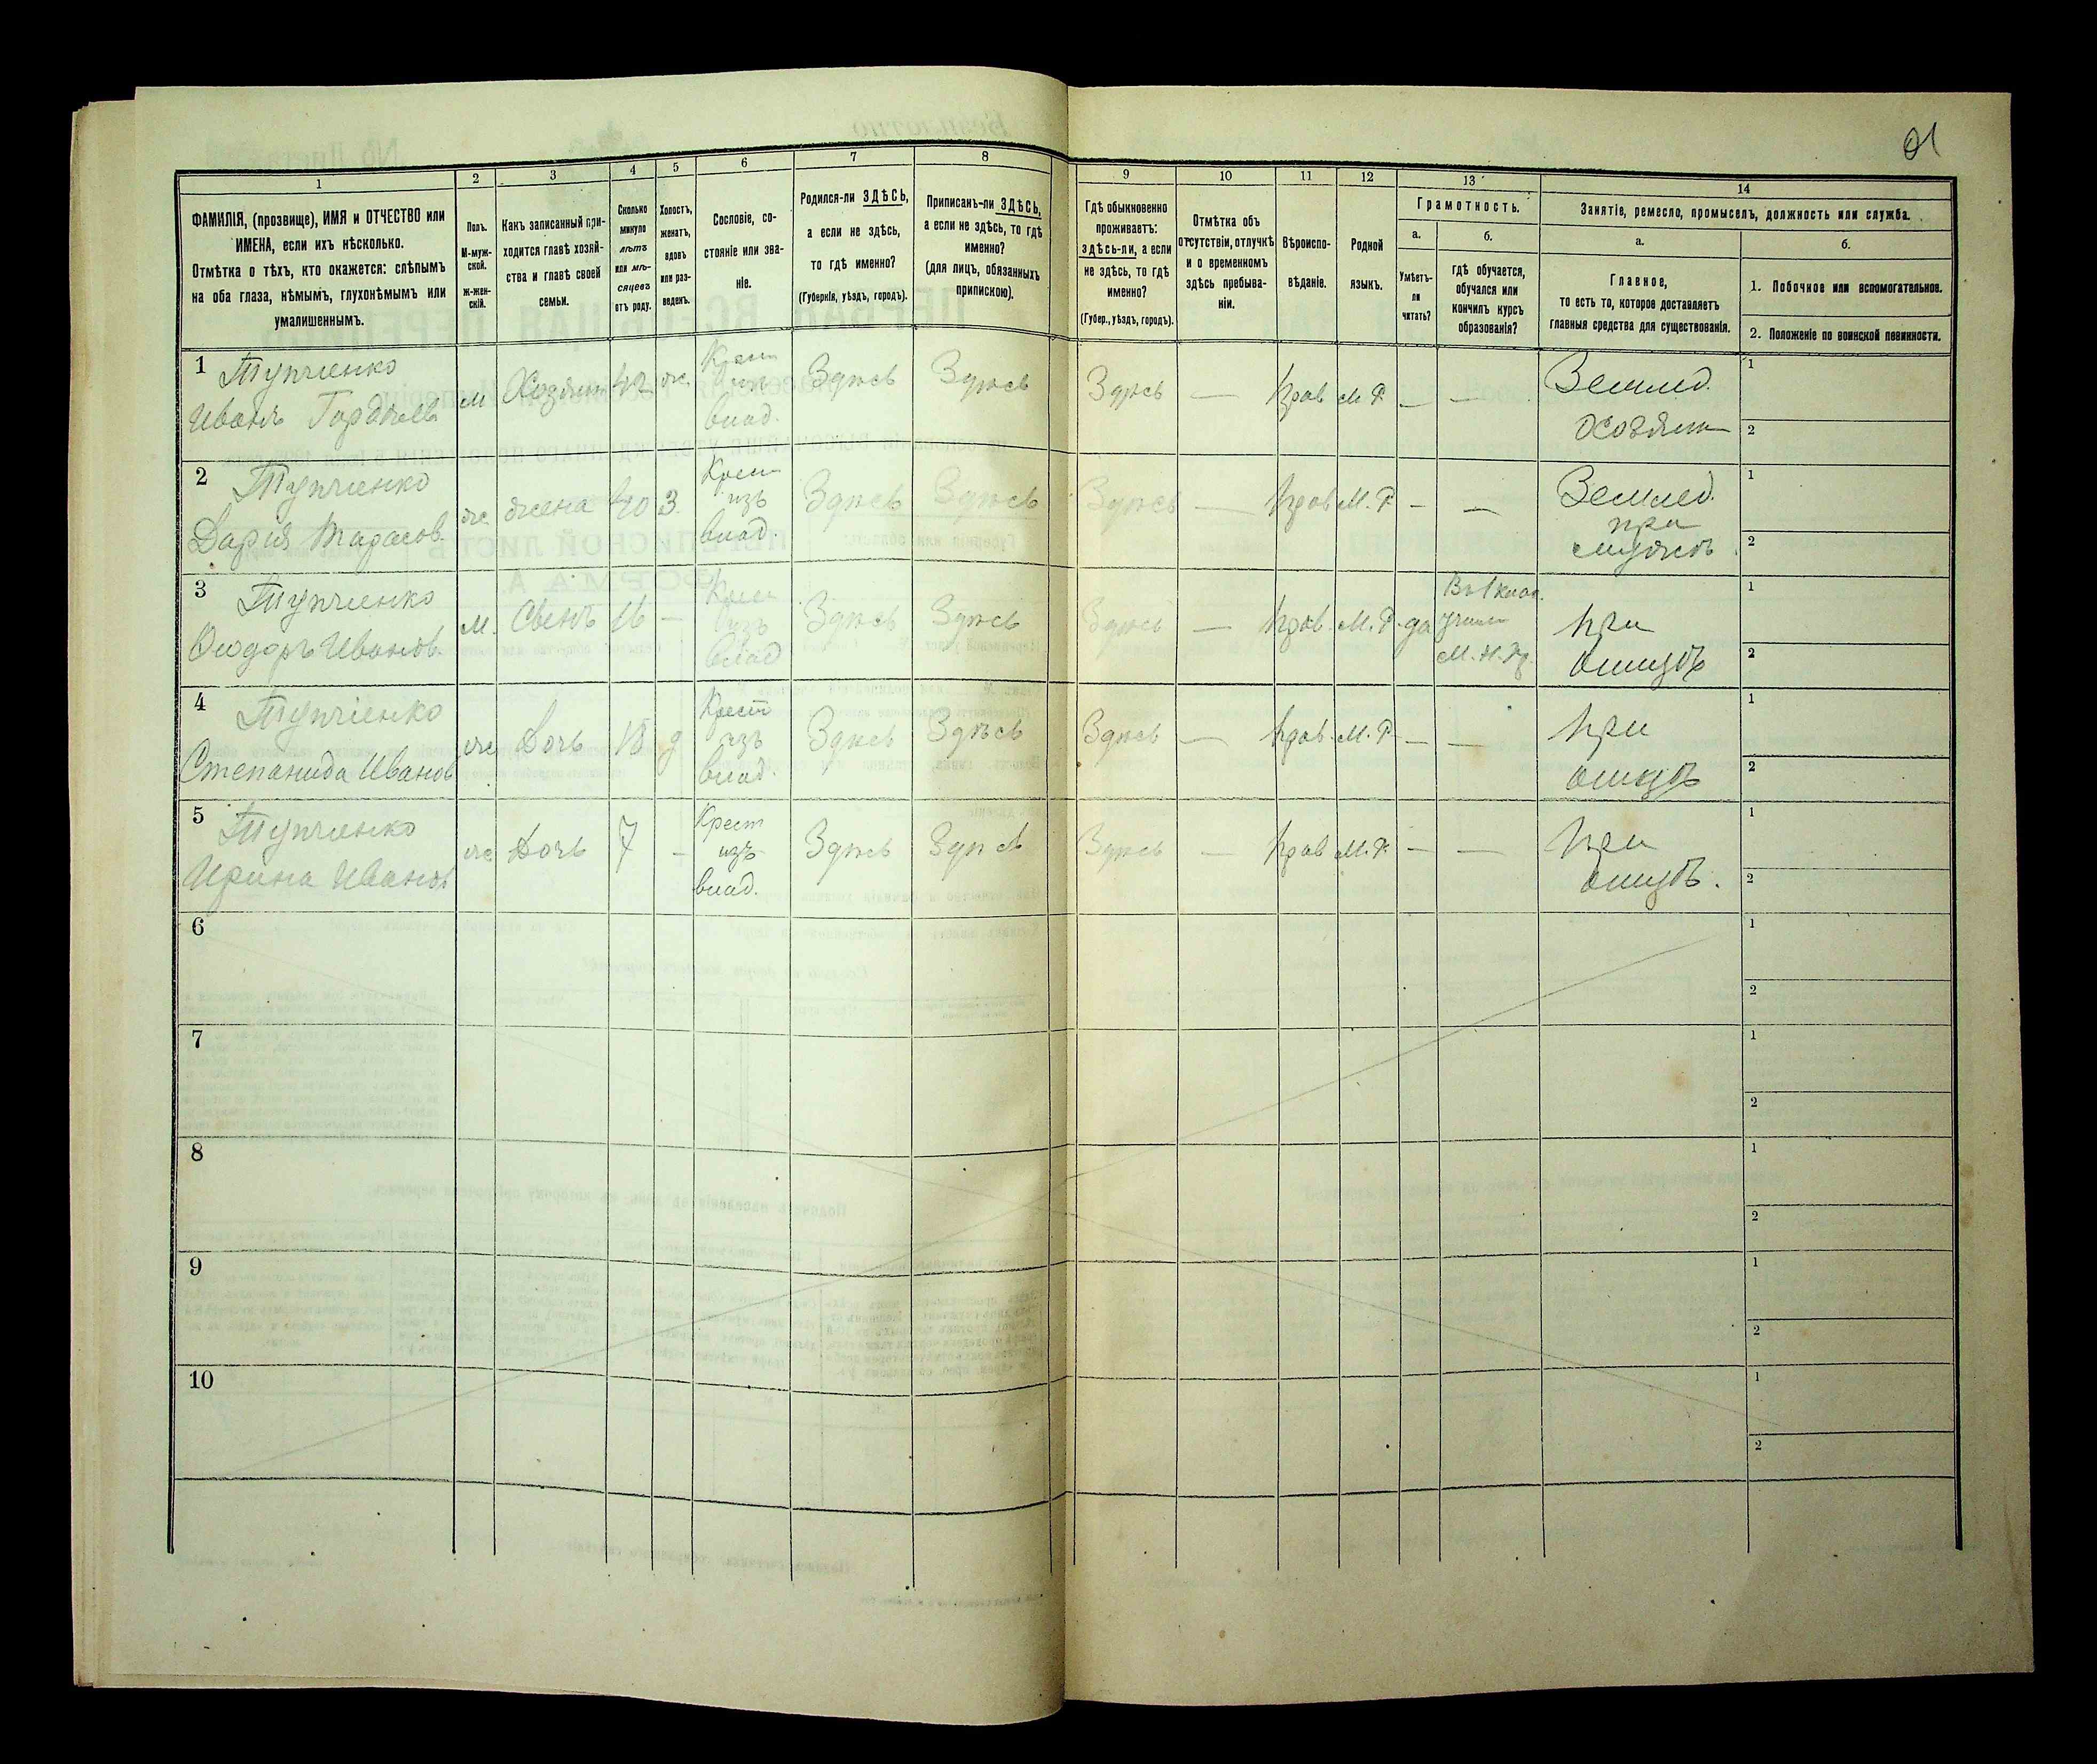 21
1
2
3
4
5
6
7
8
9
10
11
12
13
14
ФАМИЛІЯ, (прозвище), ИМЯ и ОТЧЕСТВО или
ИМЕНА, если ихъ нѣсколько.
Отмѣтка о тѣхъ, кто окажется: слѣпымъ
на оба глаза, нѣмымъ, глухонѣмымъ или
умалишеннымъ.
Полъ.
М-муж-
ской.
ж-жен-
скій.
Какъ записанный при-
ходится главѣ хозяй-
ства и главѣ своей
семьи.
Сколько
минуло
лѣтъ
или мѣ-
сяцевъ
отъ роду.
Холостъ,
женатъ,
вдовъ
или раз-
веденъ.
Сословіе, со-
стояніе или зва-
ніе.
Родился-ли ЗДѢСЬ,
а если не здѣсь,
то гдѣ именно?
(Губернія, уѣздъ, городъ).
Приписанъ-ли ЗДѢСЬ,
а если не здѣсь, то гдѣ
именно?
(для лицъ, обязанныхъ
припискою).
Гдѣ обыкновенно
проживаетъ:
здѣсь-ли, а если
не здѣсь, то гдѣ
именно?
(Губер., уѣздъ, городъ).
Отмѣтка объ
отсутствіи, отлучкѣ
и о временномъ
здѣсь пребыва-
ніи.
Вѣроиспо-
вѣданіе.
Родной
языкъ.
Грамотность.
а.
Умѣетъ-
ли
читать?
б.
гдѣ обучается,
обучался или
кончилъ курсъ
образованія?
Занятіе, ремесло, промыселъ, должность или служба.
а.
Главное,
то есть то, которое доставляетъ
главныя средства для существованія.
б.
1. Побочное или вспомогательное.
2. Положеніе по воинской повинности.
1 Тупченко
Иванъ Гордѣевъ
м
Хозяинъ
42
ж.
Крест
изъ
влад.
Здѣсь
Здѣсь
Здѣсь
—
Прав
М Р.
—
—
Землед.
Хозяинъ
1
2
2 Тупченко
Дарія Тарасов.
ж.
жена
40
З.
Крест
изъ
влад.
Здѣсь
Здѣсь
Здѣсь
—
Прав
М. Р.
—
—
Землед.
при
мужѣ
1
2
3 Тупченко
Ѳедоръ Иванов.
м.
Сынъ
16
—
Крест
изъ
влад
Здѣсь
Здѣсь
Здѣсь
—
Прав.
М. Р.
да
В 1 клас.
учил
М. Н. Пр.
При
отцѣ
1
2
4 Тупченко
Степанида Иванов
ж
Дочь
18
д
Крест
изъ
влад.
Здѣсь
Здѣсь
Здѣсь
—
Прав.
М. Р.
—
—
При
отцѣ
1
2
5 Тупченко
Ирина Иванов
ж
Дочь
7
—
Крест
изъ
влад.
Здѣсь
Здѣсь
Здѣсь
—
Прав
М. Р.
—
—
При
отцѣ.
1
2
6
1
2
7
1
2
8
1
2
9
1
2
10
1
2